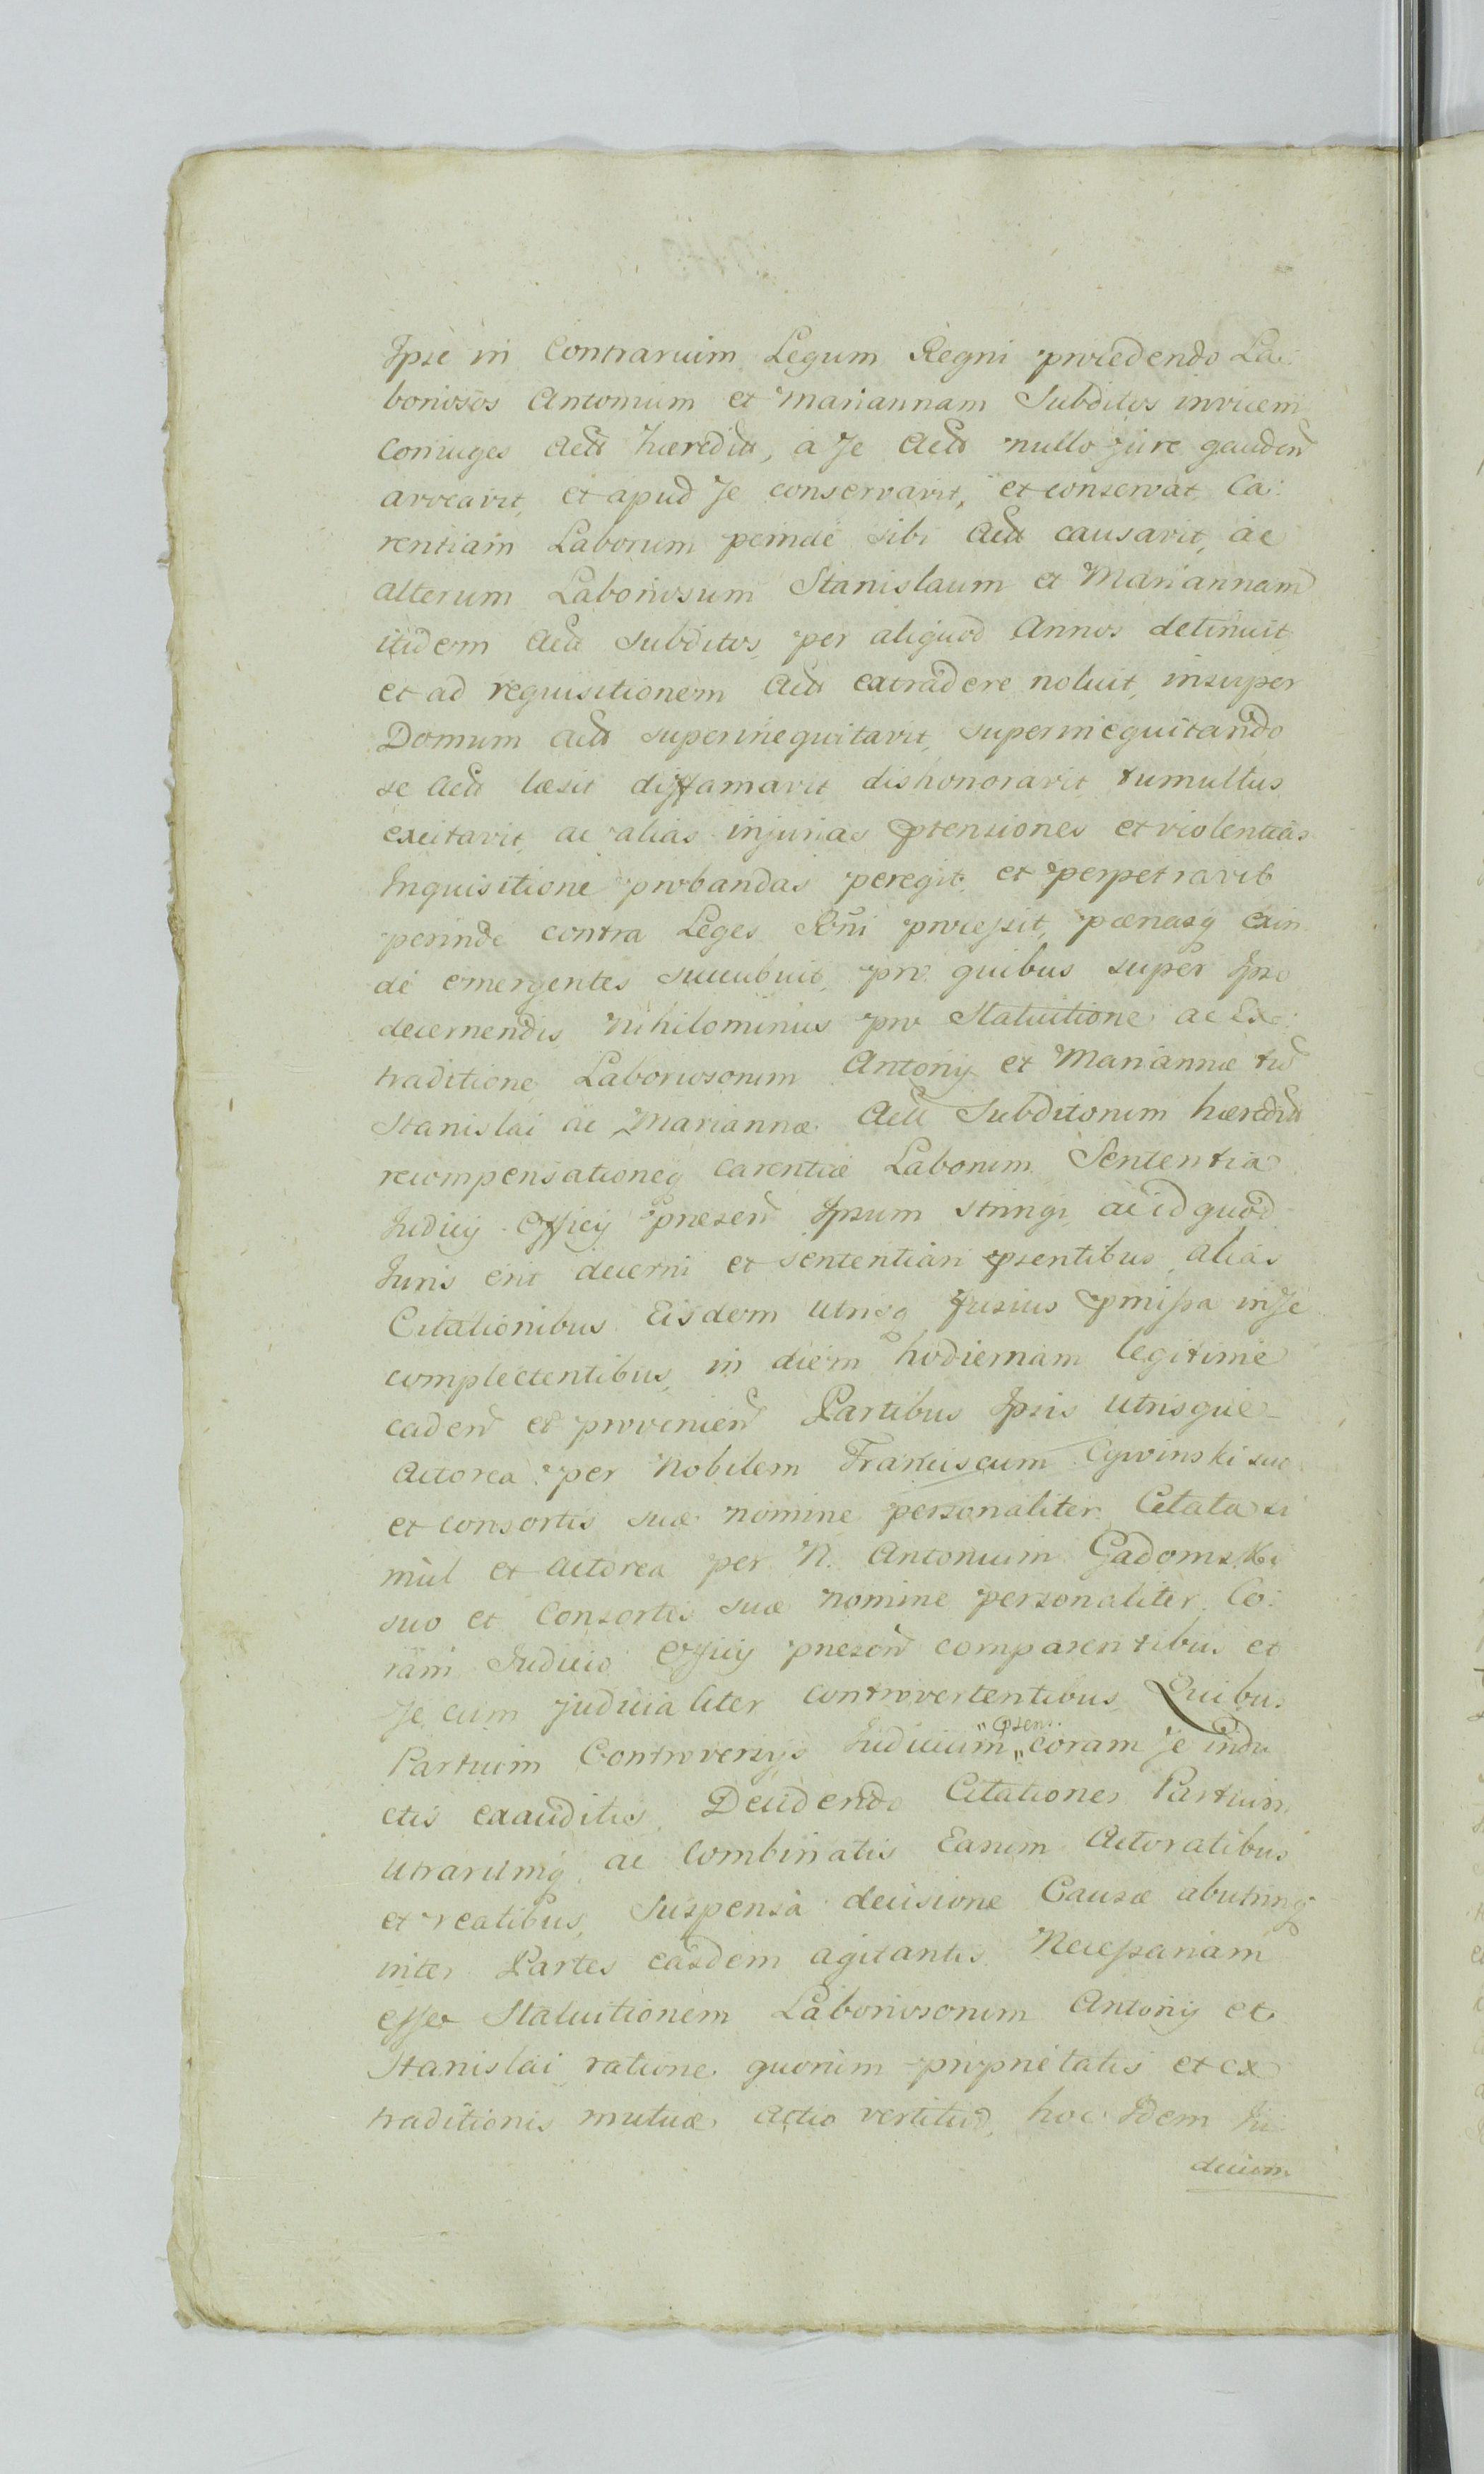 Ipse in Contrarium Legum Regni procedendo La:
boriosos Antonium et Mariannam Subditos invicem
Coniuges Actt hæreditt, a Se Actt nullo jure gauden
avocavit, et apud Se conservavit, et conservat, Ca:
rentiam Laborum perinde sibi Actt causavit, ac
alterum Laboriosum Stanislaum et Mariannam
itidem Actt subditos, per aliquod Annos detinuit,
et ad requisitionem Actt extradere noluit, insuper
Domum Actt superinequitavit, superinequitando
se Actt læsit diffamavit dishonoravit tumultus
excitavit, ac alias injurias ptensiones et violentias
Inquisitione probandas peregit, et perpetravit
perinde contra Leges Rñi processit, pænasq exin
de emergentes succubuit, pro quibus super Ipso
decernendis nihilominus pro Statuitione ac Ex:
traditione Laboriosorum Antonij et Mariannæ tud
Stanislai ac Mariannæ Actt Subditorum hæreditt
recompensationeq carentiæ Laborum Sententia
Judicij Officij præsen Ipsum stringi, ac id quod
Juris erit decerni et sententiari psentibus, alias
Citationibus Eisdem utrisq fusius pmissa in Se
complectentibus, in diem hodiernam legitime
caden et provenien Partibus Ipsis utrisque
Actorea per Nobilem Franciscum Cywinski suo
et consortis suæ nomine personaliter Citata si
mul et Actorea per N. Antonium Gadomski
suo et Consortis suæ nomine personaliter Co:
ram Judicio Officij præsen comparentibus et
Se cum judicialiter controvertentibus Quibus
Partium Controversijs Judicium „psens„ coram Se indu
ctis exauditis, Decidendo Citationes Partium
utrarumq ac combinatis Earum Actoratibus
et reatibus, Suspensa decisione Causæ abutrinq
inter Partes easdem agitantis Necessariam
esse Statuitionem Laboriosorum Antonij et
Stanislai ratione quorum proprietatis et ex
traditionis mutuæ actio vertitur, hoc Idem Ju
dicium